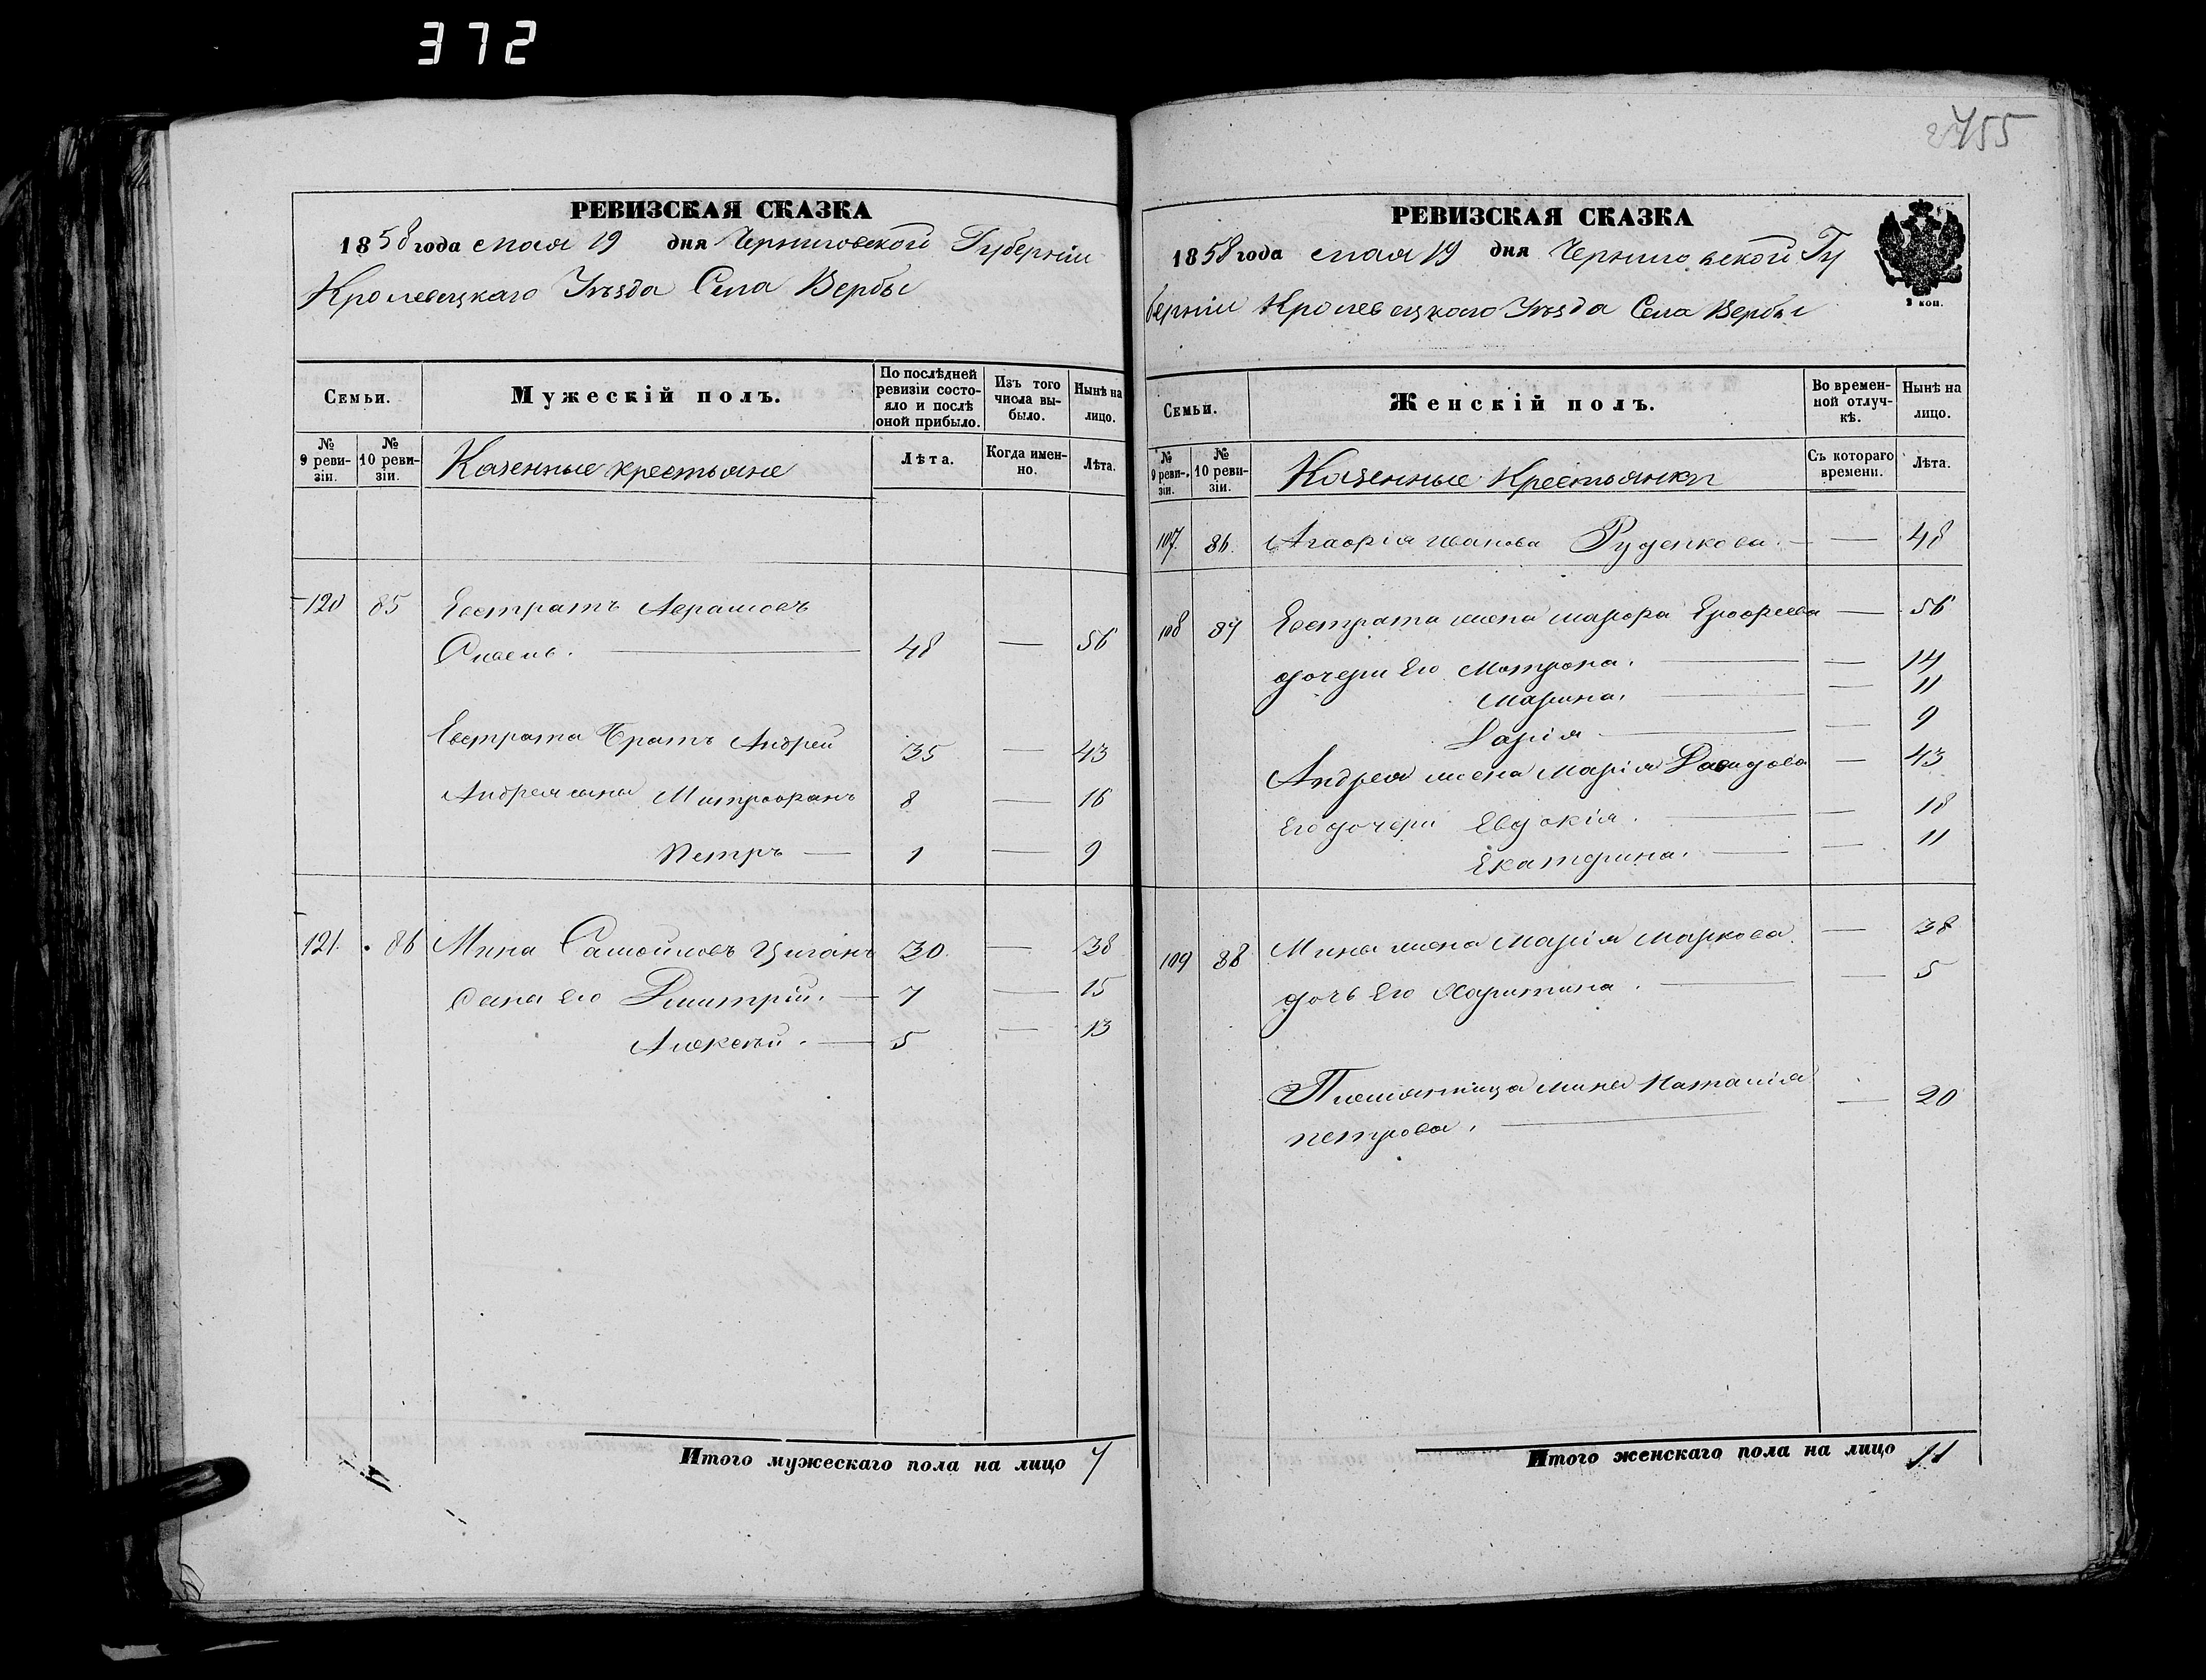 372
455
РЕВИЗСКАЯ СКАЗКА
1858 года мая 19 дня Черниговской Губерніи
Кролевецкаго Уѣзда Села Вербы
Семьи.
Мужескій полъ.
По послѣдней ревизіи состояло и послѣ оной прибыло.
Изъ того числа выбыло.
Нынѣ на лицо.
№ 9 ревизіи.
№ 10 ревизіи.
Казенные крестьяне
Лѣта.
Когда именно.
Лѣта.
120 85 Евстратъ Аврамовъ
48 — 56
Евстрата Братъ Андрей 35 — 43
Андрея сына Митрофанъ 8 — 16
Петръ — 1 — 9
121. 86 Мина Самойловъ Циганъ 30 — 38
Сына Его Дмитрій. — 7 — 15
Алексѣй. — 5 — 13
Итого мужескаго пола на лицо 7
РЕВИЗСКАЯ СКАЗКА
1858 года мая 19 дня Черниговской Гу
берніи Кролевецкаго Уѣзда Села Вербы
3 коп.
Семьи.
Женскій полъ.
Во временной отлучкѣ.
Нынѣ на лицо.
№ 9 ревизіи.
№ 10 ревизіи.
Казенные Крестьянки
Съ котораго времени.
Лѣта.
107. 86. Агафія Иванова Руденкова. — — 48
108 87 Евстрата жена Марфа Ерофеева — 56
дочери Его Мотрона. — — 14
Марина. — — 11
Дарія — — 9
Андрея жена Марія Давидова — 43
Его дочери Евдокія. — — 18
Екатерина. — — 11
109 88 Мины жена Марія Маркова. — 38
дочь Его Харитина. — — 5
Племянница Мины Наталія
Петрова. — — 20
Итого женскаго пола на лицо 11